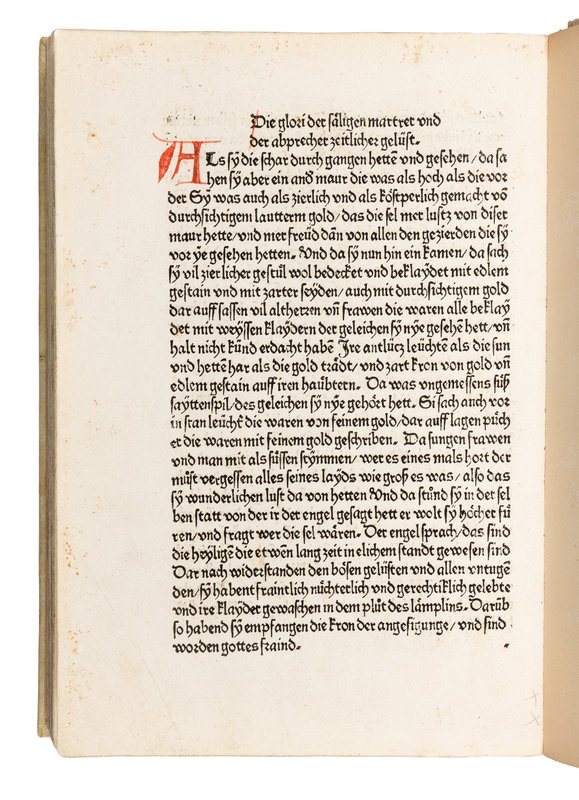 Die glori der säligen martrer vnd
der abprecher zeitlicher gelüst.
ALs sÿ die schar durch gangen hetten vnd gesehen/ da sa
hen sÿ aber ein and̄ maur die was als hoch als die vor
der Sÿ was auch als zierlich vnd als köstperlich gemacht vō
durchsichtigem lautterm gold/ das die sel mer lustz von diser
maur hette/ vnd mer freüd dān von allen den gezierden die sÿ
vor ÿe gesehen hetten. Und da sÿ nun hin ein kamen/ da sach
sÿ vil zierlicher gestül wol bedecket vnd beklaydet mit edlem
gestain vnd mit zarter seyden/ auch mit durchsichtigem gold
dar auff sassen vil altherren vn̄ frawen die waren alle beklay
det mit weyssen klaydern der geleichen sÿ nÿe gesehē hett/ vn̄
halt nicht künd erdacht habē Ire antlücz leüchtē als die sun
vnd hettē har als die gold trådt/ vnd zart kron von gold vn̄
edlem gestain auff iren haübtern. Da was vngemessens süß
sayttenspil/ des geleichen sÿ nÿe gehört hett. Si sach auch vor
in stan leüchtē die waren von feinem gold/ dar auff lagen püch
er die waren mit feinem gold geschriben. Da sungen frawen
vnd man mit als süssen stymmen/ wer es eines mals hort der
můst vergessen alles seines layds wie groß es was/ also das
sÿ wunderlichen lust da von hetten Und da stůnd sÿ in der sel
ben statt von der ir der engel gesagt hett er wolt sÿ höcher fü
ren/ vnd fragt wer die sel wären. Der engel sprach/ das sind
die heyligē die etwēn lang zeit in elichem standt gewesen sind
Dar nach widerstanden den bösen gelüsten vnd allen vntugē
den/ sÿ habent fraintlich nüchterlich vnd gerechtiklich gelebte
vnd ire klaydet gewaschen in dem plůt des lämplins. Darüb
so habend sÿ empfangen die kron der angesigunge/ vnd sind
worden gottes fraind.